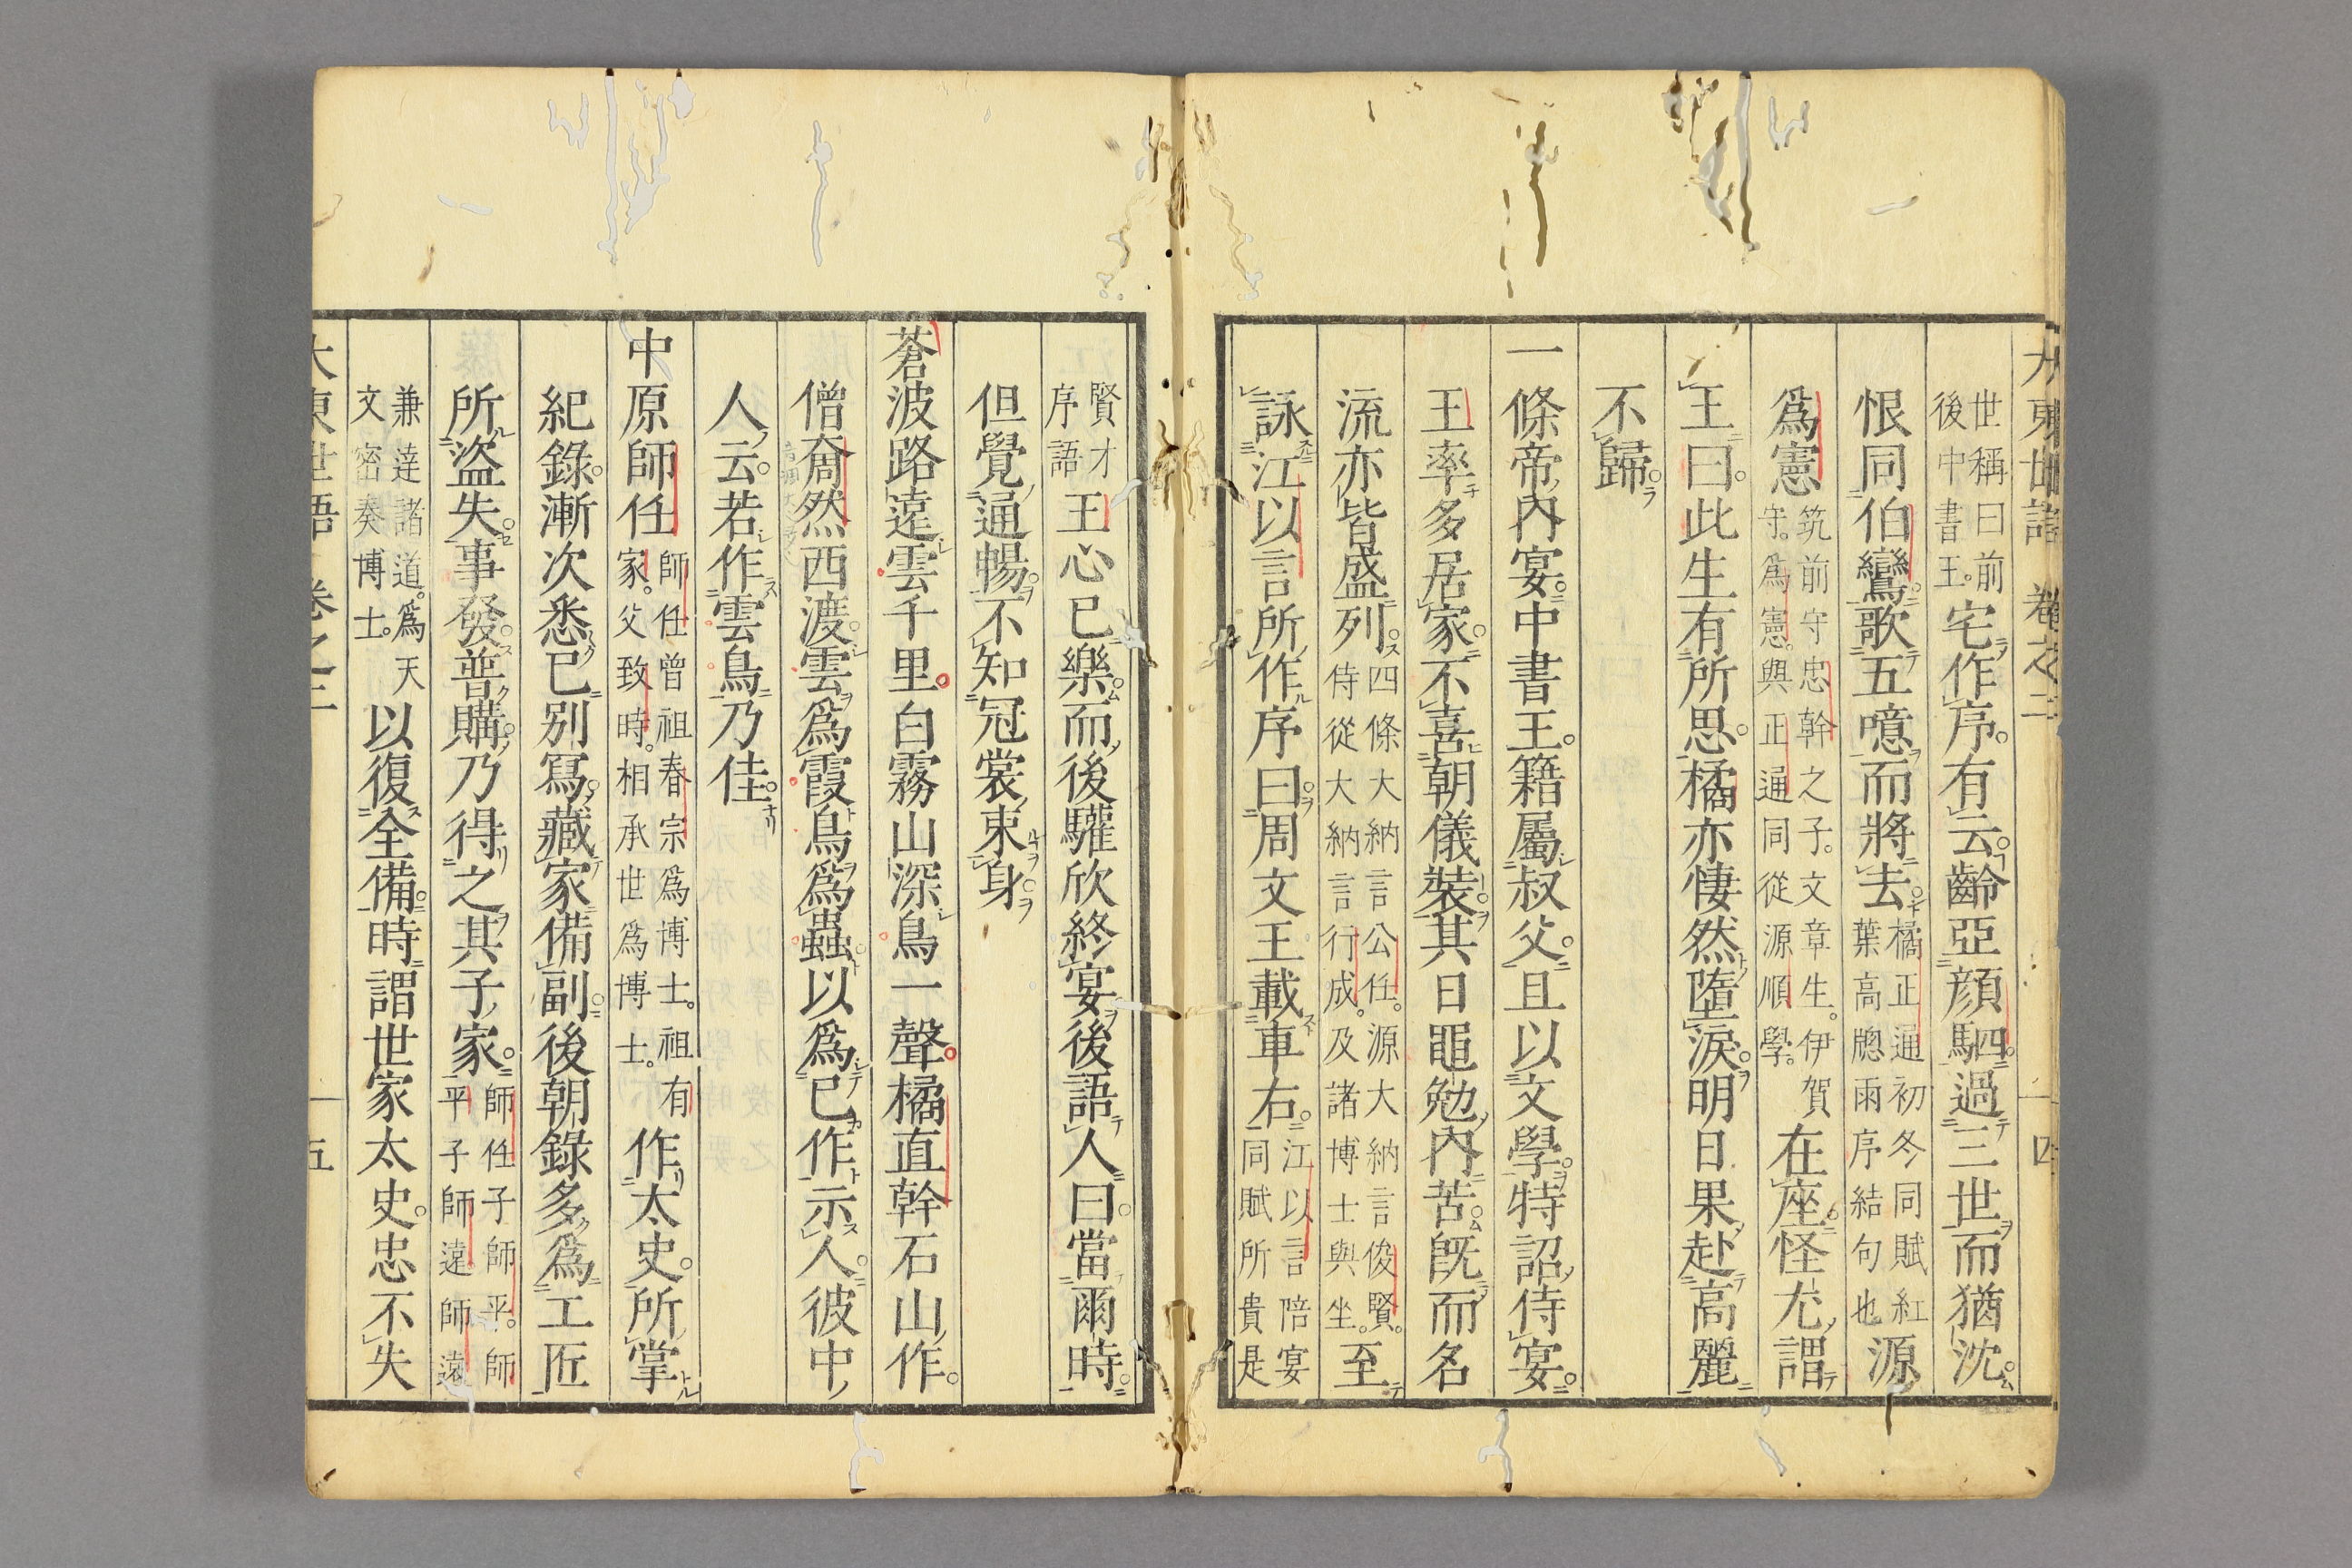 大東世語 卷之二 十四
世稱曰前
後中書王。宅作序。有云齡亞顔駟。過三世而猶沈
恨同伯鸞。歌五噫而將去。橘正通初冬同賦紅
葉高牕雨序結句也。源
爲憲筑前守忠幹之子。文章生。伊賀
守。爲憲。與正通同從源順學。在座怪尤謂
王曰。此生有所思。橘亦悽然墮淚。明日果赴高麗
不歸。
一條帝內宴。中書王。籍屬叔父。且以文學。特詔侍宴。
王率多居家。不喜朝儀裝。其日黽勉內苦。旣而名
流亦皆盛列。四條大納言公任。源大納言俊賢。
侍從大納言行成。及諸博士與坐。至
詠江以言所作序曰。周文王載車右。江以言陪宴
同賦所貴是
賢才
序語王心已樂。而後驩欣終宴。後語人曰。當爾時。
但覺通暢。不知冠裳束身。
蒼波路遠雲千里。白霧山深鳥一聲。橘直幹石山作。
僧奝然西渡。雲爲霞鳥爲蟲。以爲已作示人。彼中
人云。若作雲鳥乃佳。
中原師任師任曾祖春宗爲博士。祖有
家。父致時。相承世爲博士。作太史。所掌
紀錄。漸次悉已別寫。藏家備副。後朝錄多爲工匠
所盜失。事發。普購。乃得之其子家。師任子師平。師
平子師遠師遠
兼達諸道。爲天
文密奏博士。以復全備。時謂世家太史。忠不失
大東世語 卷之二 十五